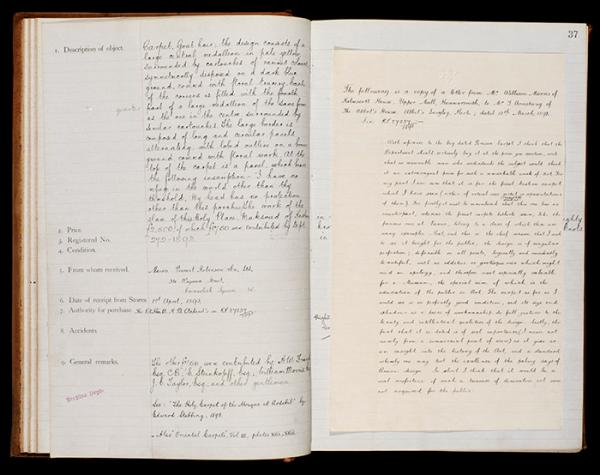 37
1. Description of object.
Carpet. Goat hair; the design consists of a
large central medallion in pale yellow
surrounded by cartouches of various colours
symmetrically disposed on a dark blue
ground, covered with floral tracery. Each
of the corners is filled with the fourth
part of a large medallion of the same form
as the one in the center surrounded by
similar cartouches. The large border is
composed of long and circular panels
alternating, with lobed outlines on a brown
ground covered with floral work. At the
top of the carpet is a panel, which bears
the following inscription - "I have no
refuge in the world other than thy
threshold. My head has no protection
other than this porchway. The work of the
slave of this Holy Place, Maksoud of Kashan
2. Price
£2,500, of which £ 500 were contributed by
3. Registered No.
272-1893
4. Condition.
5. From whom received.
Messrs Vincent Robinson & Co, Ltd,
34 Wigmore Street,
Cavendish Square W.
6. Date of receipt from Stores
1893.
7. Authority for purchase
8. Accidents
9. General remarks.
The were contributed by A. W. Franks
Esq, C.B., E. Steinkopff, Esq., William Morris
J. E. Taylor, Esq. and other gentlemen.
Textiles Dept.
See: "The Holy Carpet of the Mosque at Ardebil" by
Edward Stebbing, 1893.
Also "Oriental Carpets", Vol III, plates
The following is a copy of a letter from Mr William Morris of
Kelmscott House, Upper Mall, Hammersmith, to Mr T Armstrong of
The Abbot's House Abbot's Langley, Herts, dated 13th March, 1893.
With reference to the big dated Persian Carpet I think that the
Department should certainly buy it at the price you mention, and
what is reasonable men who understand the subject would think
it an extravagant price for such a remarkable work of art. For
my part I am sure that it is far the finest Eastern carpet
that I have seen
of them). For firstly it must be remembered that this one has no
counterpart, whereas the finest carpets
many examples. But, and this is the chief reason that I wish
to see it bought for the public, the design is of singular
perfection; defensible on all points, logically and
beautiful, with no oddities or grotesqueries which might
need an apology, and therefore most especially valuable
for a Museum, the special aim of which is the
education of the public in Art. The carpet as far as I
could see is in perfectly good condition, and its size and
splendour as a piece of workmanship do full justice to the
beauty and intellectual qualities of the design. Lastly, the
fact that it is dated is of real importance (I mean not
merely from a commercial point of view) as it gives us
an insight into the history of the Art, and a standard
whereby one may test the excellence of the palmy days of
Persian design. In short I think that it would be a
real misfortune if such a treasure of decorative art were
not acquired for the public.